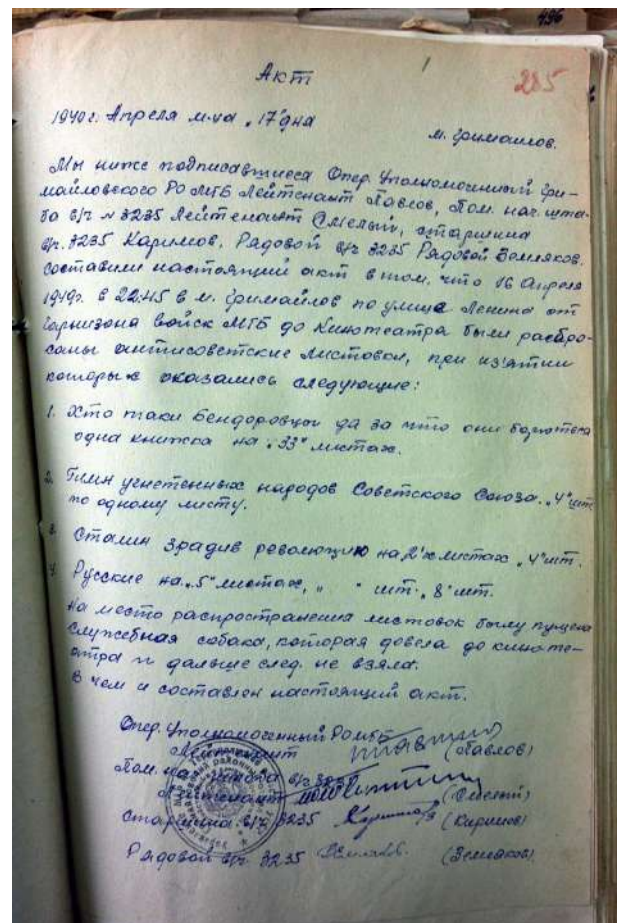 496
Акт
285
1949г. Апреля м-ца "17" дня
м. Гримайлов.
Мы ниже подписавшиеся Опер. Уполномоченный Гри-
майловского РО МГБ Лейтенант Павлов, Пом. нач. шта-
ба в/ч № 3235 Лейтенант Смелый, старшина
в/ч. 3235 Каримов, Рядовой в/ч 3235 Рядовой Земляков.
Составили настоящий акт в том, что 16 Апреля
1949г. в 22.45 в м. Гримайлов по улице Ленина от
Гарнизона войск МГБ до Кинотеатра были разбро-
саны антисоветские листовки, при из'ятии
которых оказались следующие:
1. Хто таки Бендоровцы да за что они борются
одна книжка на "33" листах.
2. Гимн угнетенных народов Советского Союза. "4" шт
по одному листу.
3. Сталин зрадив революцию на 2х листах "4" шт.
4. Русские на "5" листах, " " шт. "8" шт.
На место распространения листовок была пущена
служебная собака, которая довела до кино-те-
атра и дальше след. не взяла.
В чем и составлен настоящий акт.
Опер. Уполномоченный РОМГБ
Лейтенант (Павлов)
Пом. нач. штаба в/ч 3235
Лейтенант (Смелый)
Старшина в/ч 3235 (Каримов)
Рядовой в/ч. 3235 (Земляков)